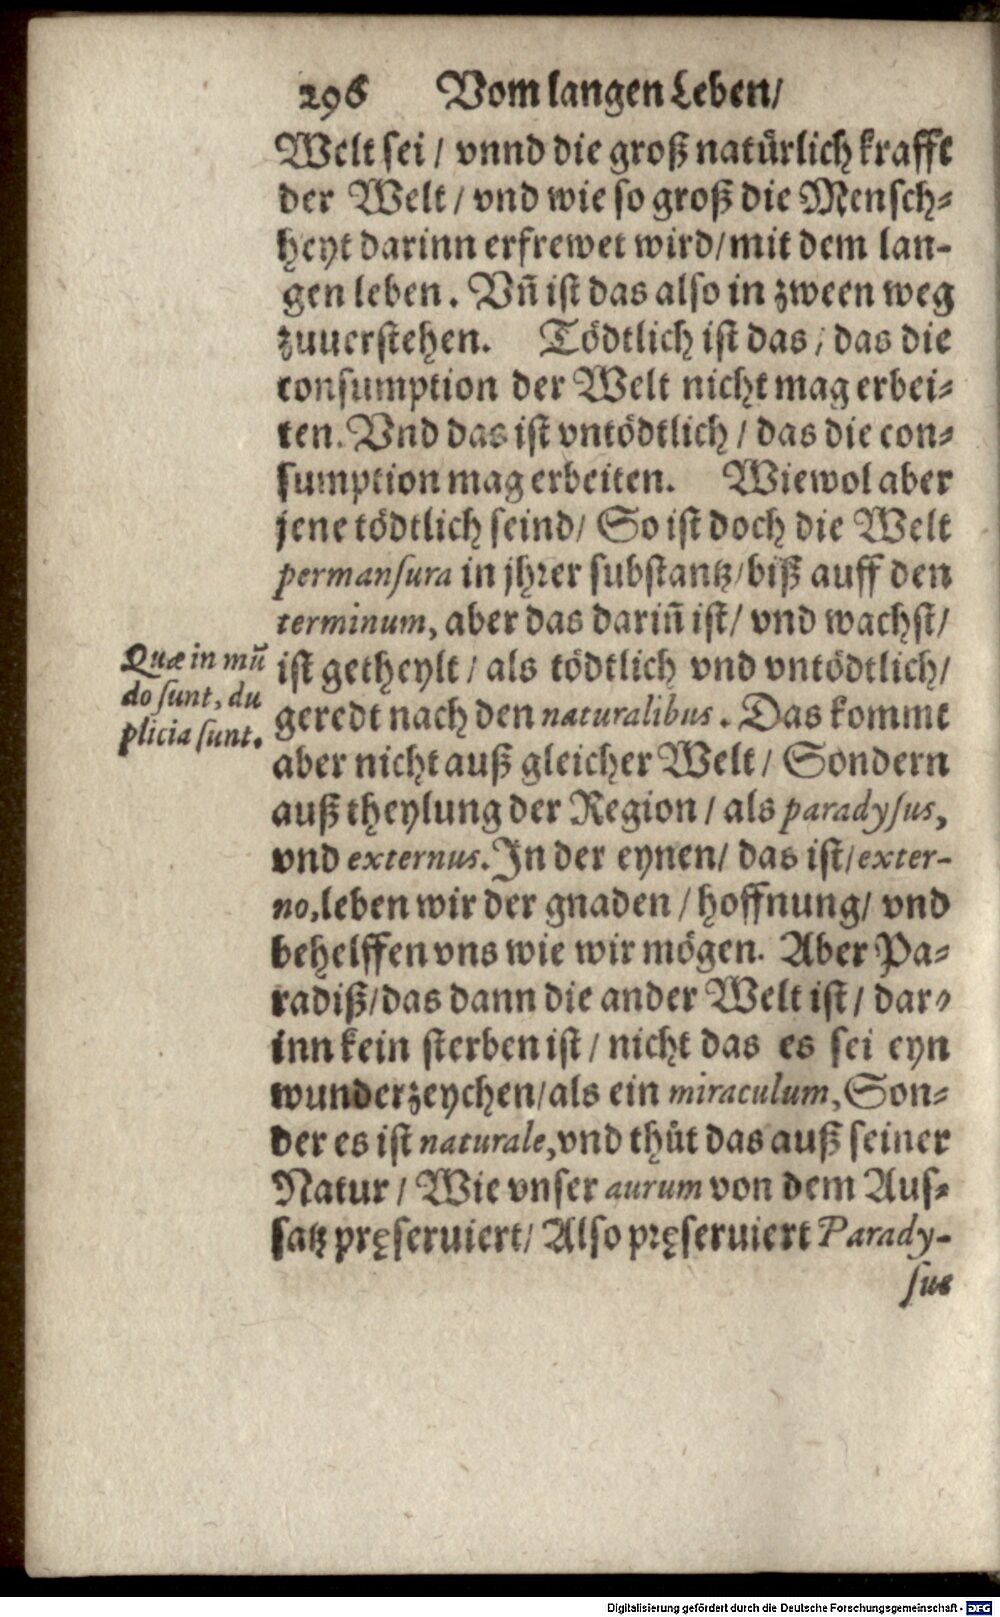 296 Vom langen Leben/
Welt sei / vnnd die groß natürlich krafft
der Welt / vnd wie so groß die Mensch⸗
heyt darinn erfrewet wird/mit dem lan-
gen leben. Vñ ist das also in zween weg
zuuerstehen. Tödtlich ist das / das die
consumption der Welt nicht mag erbei⸗
ten. Vnd das ist vntödtlich / das die con⸗
sumption mag erbeiten. Wiewol aber
jene tödtlich seind/ So ist doch die Welt
permansura in jhrer substantz/biß auff den
terminum, aber das dariñ ist/ vnd wachst/
ist getheylt / als tödtlich vnd vntödtlich/
geredt nach den naturalibus. Das kommt
aber nicht auß gleicher Welt / Sondern
auß theylung der Region / als paradysus,
vnd externus. In der eynen/ das ist/exter-
no, leben wir der gnaden / hoffnung/ vnd
behelffen vns wie wir mögen. Aber Pa⸗
radiß/das dann die ander Welt ist / dar⸗
inn kein sterben ist / nicht das es sei eyn
wunderzeychen/als ein miraculum, Son⸗
der es ist naturale, vnd thůt das auß seiner
Natur / Wie vnser aurum von dem Aus⸗
satz pręseruiert/ Also pręseruiert Parady-
sus
Quæ in mũ
do sunt, du
plicia sunt.
Digitalisierung gefördert durch die Deutsche Forschungsgemeinschaft - DFG